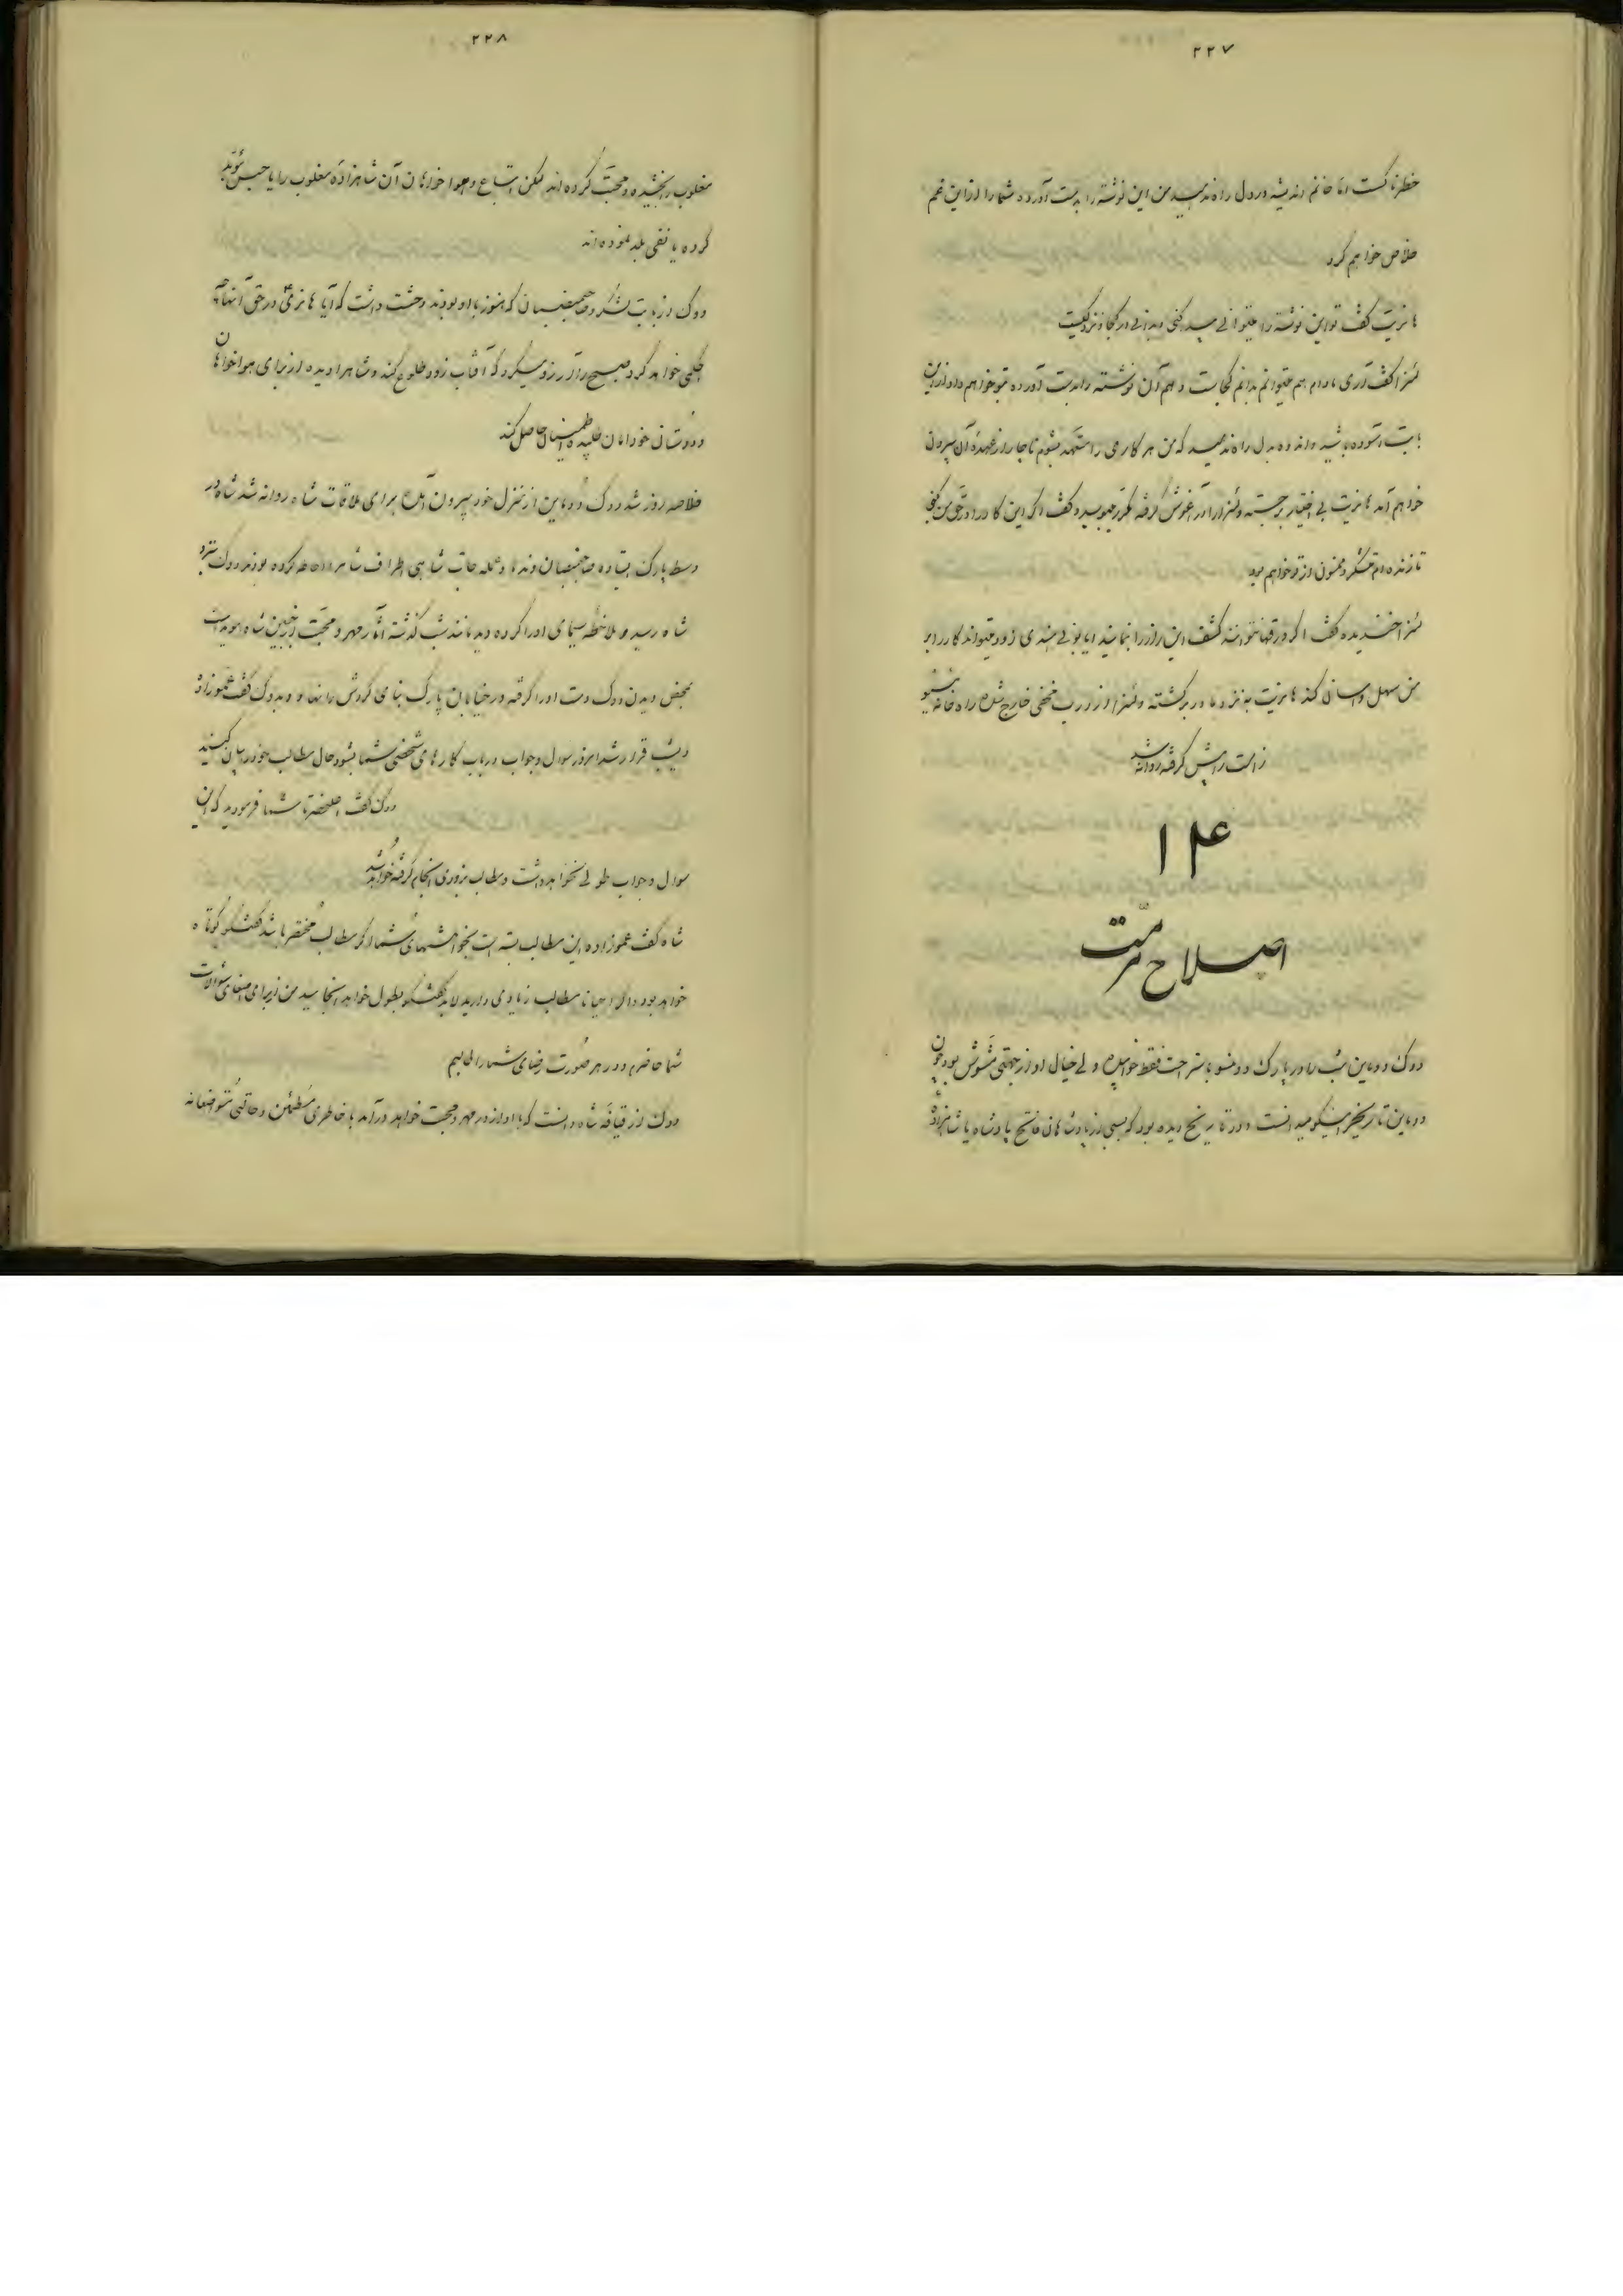 ۲۲۷
خطرناکست اما خانم اندیشه در دل راه ندهید من این نوشته را بدست آورده شما را از این غم
خلاص خواهم کرد
هانریت گفت تو این نوشته را میتوانی پیدا کنی و بدانی در کجا و نزد کیست
گفت آری مادام هم میتوانم بدانم کجاست و هم آن نوشته را بدست آورده بتو خواهم داد از این
بابت آسوده باشید و اندوه بدل راه ندهید که من هر کاری را متعهد بشوم ناچار از عهدهٔ آن بیرون
خواهم آمد هانریت بی اختیار برجسته و را در آغوش گرفته مکرر ببوسید و گفت اگر این کار را در حق من کنی
تا زنده‌ام متشکر و ممنون از تو خواهم بود
خندیده گفت اگر نتوانند کشف این راز را نمایند زود میتواند کار را بر
من سهل و آسان کند هانریت به نزد مادر برگشته و از درب مخفی خارج شده راه خانه
را پیش گرفته روانه شد
۱۴
اصلاح مرمت
دوک دوماین شب را در پارک باستراحت فقط خوابیده ولی خیال او از جهتی مشوش بود چون
دوماین تاریخ را نیکو میدانست و در تاریخ دیده بود که بسی از پادشاهان فاتح پادشاه یا شاهزادهٔ
۲۲۸
مغلوب را بخشیده و محبت کرده‌اند لکن اتباع و هوا خواهان آن شاهزادهٔ مغلوب را یا حبس مؤبد
کرده یا نفی بلد نموده‌اند
دوک از بابت لشکر و صاحبمنصبان که هنوز با او بودند وحشت داشت که آیا هانری در حق آنها چه
حکمی خواهد کرد و صبح را آرزو میکرد که آفتاب زود طلوع کند و شاه را دیده از برای هوا خواهان
و دوستان خود امان طلبیده اطمینان حاصل کند
خلاصه روز شد دوک دوماین از منزل خود بیرون آمده برای ملاقات شاه روانه شد شاه در
وسط پارک ایستاده صاحبمنصبان و عمله جات شاهی اطراف شاه را احاطه کرده بودند دوک نزد
شاه رسید و ملاحظه سیمای او را کرده دید مانند شب گذشته آثار مهر و محبت از جبین شاه هویداست
بمحض دیدن دوک دست او را گرفته در خیابان پارک بنای گردش را نهاد و بدوک گفت عموزاده
دیشب قرار شد امروز سوال و جواب در باب کارهای شخصی شما بشود حال مطالب خود را بیان کنید
دوک گفت اعلیحضرتا شما فرمودید که این
سوال و جواب طولی نخواهد داشت و مطالب بزودی انجام گرفته خواهد شد
شاه گفت عموزاده این مطالب بسته است بخواهشهای شما اگر مطالب مختصر باشد گفتگو کوتاه
خواهد بود و اگر احیانا مطالب زیادی دارید لابد گفتگو بطول خواهد انجامید من از برای اصغای سؤالات
شما حاضرم و در هر صورت رضای شما را طالبیم
دوک از قیافهٔ شاه دانست که با او از در مهر و محبت خواهد درآمد با خاطری مطمئن و حالتی متواضعانه